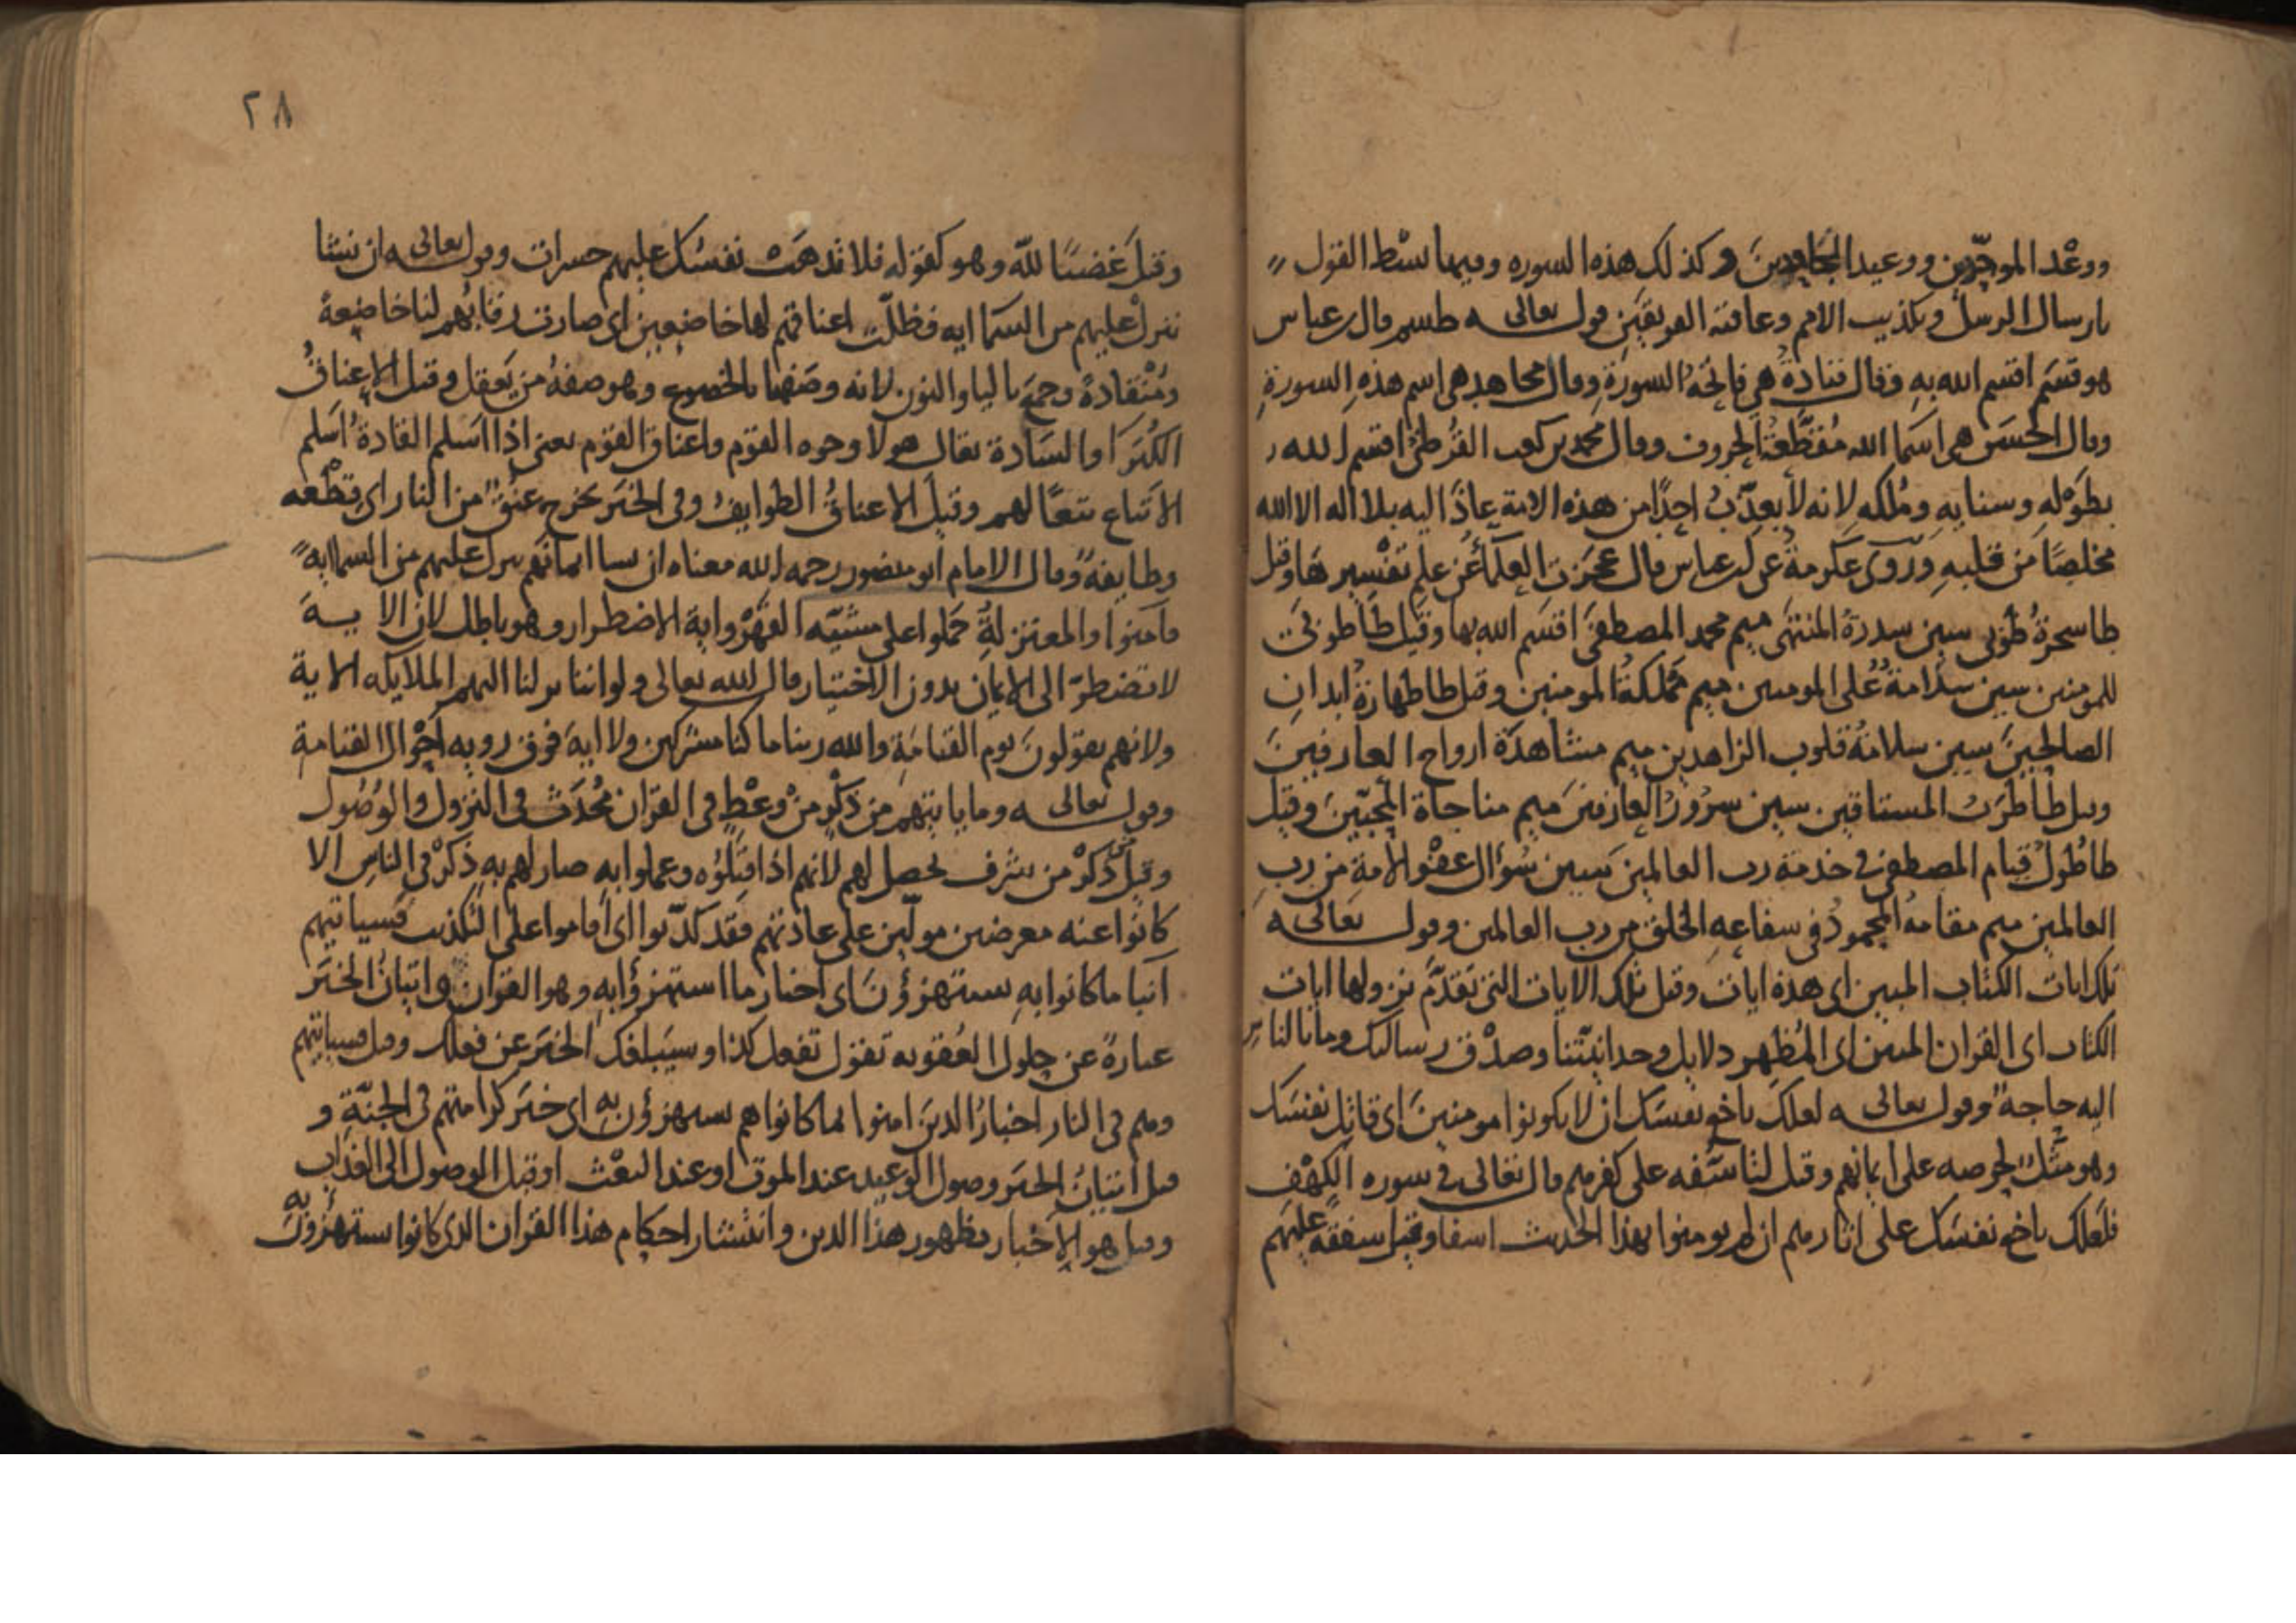 ووعد الموحدين ووعيد الجاحدين وكذلك هذه السوره وفيها بسط القول
بارسال الرسل وتكذيب الامم وعاقبة الفريقين قوله تعالى طسم قال ابن عباس
هو قسم اقسم الله به وقال قتادة هي فاتحة السورة وقال مجاهد هي اسم هذه السورة
وقال الحسن هي اسما الله مقطعة الحروف وقال محمد بن كعب القرظي اقسم الله
بطوله وسنايه وملكه لانه لا يعذب احدا من هذه الامة عاذ اليه بلا اله الا الله
مخلصا من قلبه وروى عكرمة عن ابن عباس قال عجزت العلما عن علم تفسيرها وقيل
طا شجرة طوبى سين سدرة المنتهى ميم محمد المصطفى اقسم الله بها وقيل طا طوبى
للمومنين سين سلامة على المومنين ميم مملكة المومنين وقيل طا طهارة ابدان
الصالحين سين سلامة قلوب الزاهدين ميم مشاهدة ارواح العارفين
وقيل طا طرب المشتاقين سين سرور العارفين ميم مناجاة المحبين وقيل
طا طول قيام المصطفى في خدمة رب العالمين سين سؤال عفو الامة من رب
العالمين ميم مقامه المحمود في شفاعة الخلق من رب العالمين وقوله تعالى
تلك ايات الكتاب المبين اى هذه ايات وقيل تلك الايات التي تقدم نزولها ايات
الكتاب اى القران المبين اى المظهر دلايل وحدانيتنا وصدق رسالتك وما بالناس
اليه حاجة وقوله تعالى لعلك باخع نفسك ان لا يكونوا مومنين اى قاتل نفسك
وهو مثل لحرصه على ايمانهم وقيل لتاسفه على كفرهم قال تعالى في سوره الكهف
فلعلك باخع نفسك على اثارهم ان لم يومنوا بهذا الحديث اسفا وقيل شفقة عليهم
٢٨
وقيل غضبا لله وهو كقوله فلا تذهب نفسك عليهم حسرات وقوله تعالى ان نشا
ننزل عليهم من السما ايه فظلت اعناقهم لها خاضعين اى صارت رقابهم لنا خاضعة
ومنقادة وجمع باليا والنون لانه وصفها بالخضوع وهو صفة من يعقل وقيل الاعناق
الكبرا والسادة يقال هولا وجوه القوم واعناق القوم يعنى اذا اسلم القادة اسلم
الاتباع تبعا لهم وقيل الاعناق الطوايف وفى الخبر يخرج عنق من النار اى قطعه
وطايفة وقال الامام ابو منصور رحمه الله معناه ان نشا ايمانهم ننزل عليهم من السما اية
فآمنوا والمعتزلة حملوا على مشيه القهر واية الاضطرار وهو باطل لان الايـــة
لا تضطر الى الايمان بدون الاختيار قال الله تعالى ولو اننا نزلنا اليهم الملايكه الاية
ولانهم يقولون يوم القيامة والله ربنا ما كنا مشركين ولا اية فوق رويه احوال القيامة
وقوله تعالى وما ياتيهم من ذكر من وعظ فى القران محدث فى النزول والوصول
وقيل ذكر من شرف يحصل لهم لانهم اذا قبلوه وعملوا به صار لهم به ذكر فى الناس الا
كانوا عنه معرضين مولين على عادتهم فقد كذبوا اى اقاموا على التكذيب فسياتيهم
انبا ما كانوا به يستهزؤن اى اخبار ما استهزؤا به وهو القران واتيان الخبر
عبارة عن حلول العقوبه تقول تفعل كذا وسيبلغك الخبر عن فعلك وقيل فسياتيهم
وهم فى النار اخبار الذين امنوا لما كانوا هم يستهزؤن به اى خبر كرامتهم فى الجنة و
قيل اتيان الخبر وصول الوعيد عند الموت او عند البعث او قبل الوصول الى العذاب
وقيل هو الاخبار بظهور هذا الدين وانتشار احكام هذا القران الذى كانوا يستهزؤن به